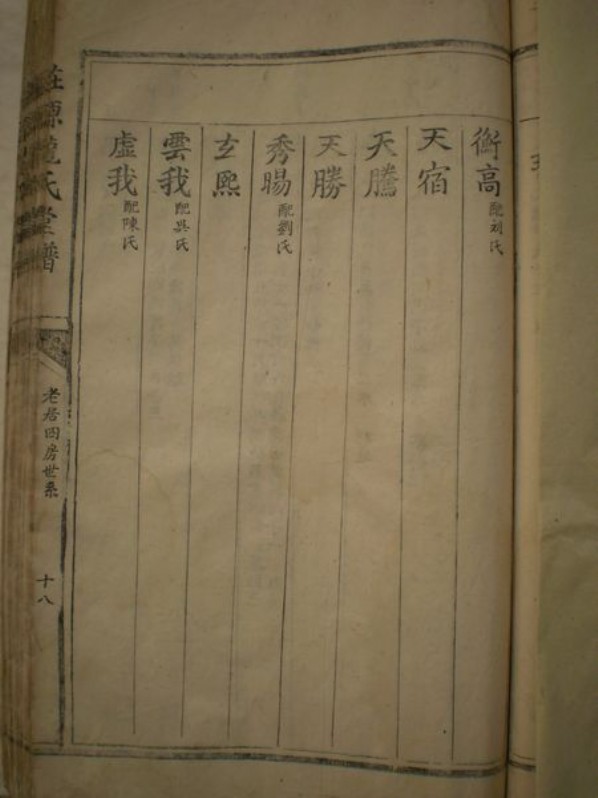 衡高 配胡氏
天宿
天騰
天勝
秀暘 配劉氏
玄熙
雲我 配吳氏
虛我 配陳氏
源 氏 譜
老居四房世系
十八